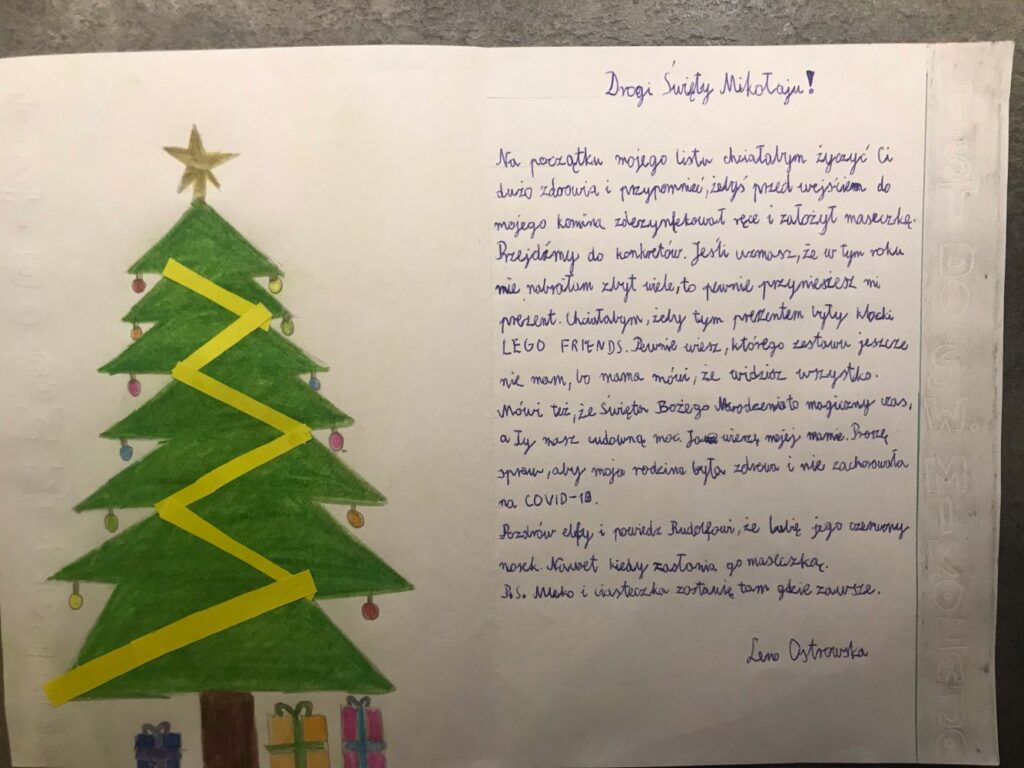 Drogi Święty Mikołaju!
Na początku mojego listu chciałabym życzyć Ci
dużo zdrowia i przypomnieć, żebyś przed wejściem do
mojego komina zdezynfekował ręce i założył maseczkę.
Przejdźmy do konkretów. Jeśli uznasz, że w tym roku
nie nabrałam zbyt wiele, to pewnie przyniesiesz mi
prezent. Chciałabym, żeby tym prezentem były klocki
LEGO FRIENDS. Pewnie wiesz, którego zestawu jeszcze
nie mam, bo mama mówi, że widzisz wszystko.
Mówi też, że Święta Bożego Narodzenia to magiczny czas,
a Ty masz cudowną moc. Ja wierzę mojej mamie. Proszę
spraw, aby moja rodzina była zdrowa i nie zachorowała
na COVID-19.
Pozdrów elfy i powiedz Rudolfowi, że lubię jego czerwony
nosek. Nawet kiedy zasłania go maseczką.
P.S. Mleko i ciasteczka zostawię tam gdzie zawsze.
Lena Ostrowska
LIST DO ŚW. MIKOŁAJA